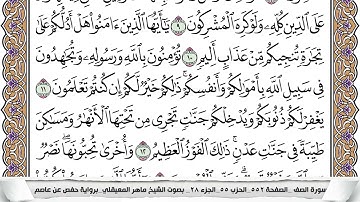 عَلَى ٱلدِّينِ كُلِّهِۦ وَلَوْ كَرِهَ ٱلْمُشْرِكُونَ ٩ يَٰٓأَيُّهَا ٱلَّذِينَ ءَامَنُوا۟ هَلْ أَدُلُّكُمْ عَلَىٰ
تِجَٰرَةٍ تُنجِيكُم مِّنْ عَذَابٍ أَلِيمٍ ١٠ تُؤْمِنُونَ بِٱللَّهِ وَرَسُولِهِۦ وَتُجَٰهِدُونَ
فِى سَبِيلِ ٱللَّهِ بِأَمْوَٰلِكُمْ وَأَنفُسِكُمْ ۚ ذَٰلِكُمْ خَيْرٌ لَّكُمْ إِن كُنتُمْ تَعْلَمُونَ ١١
يَغْفِرْ لَكُمْ ذُنُوبَكُمْ وَيُدْخِلْكُمْ جَنَّٰتٍ تَجْرِى مِن تَحْتِهَا ٱلْأَنْهَٰرُ وَمَسَٰكِنَ
طَيِّبَةً فِى جَنَّٰتِ عَدْنٍ ۚ ذَٰلِكَ ٱلْفَوْزُ ٱلْعَظِيمُ ١٢ وَأُخْرَىٰ تُحِبُّونَهَا ۖ نَصْرٌ
سورة الصف _الصفحة ٥٥٢_ الحزب ٥٥_ الجزء ٢٨_ بصوت الشيخ ماهر المعيقلي_ برواية حفص عن عاصم